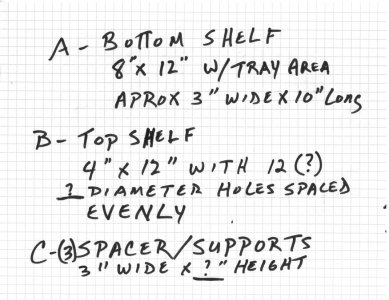 A - BOTTOM SHELF
8" X 12" W/TRAY AREA
APROX 3" WIDE X 10" Long
B - TOP SHELF
4" X 12" WITH 12 (?)
? DIAMETER HOLES SPACED
EVENLY
C - (3) SPACER/SUPPORTS
3" WIDE X ?" HEIGHT